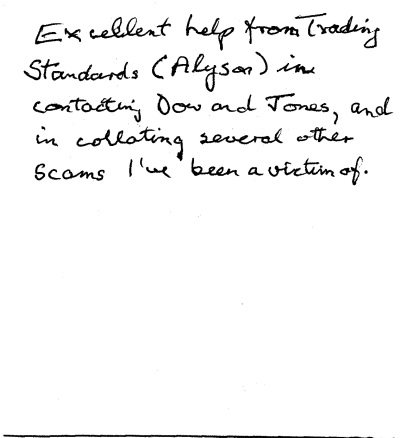 Excellent help from Trading
Standards (Alyson) in
contacting Dow and Jones, and
in collating several other
scams I've been a victim of.